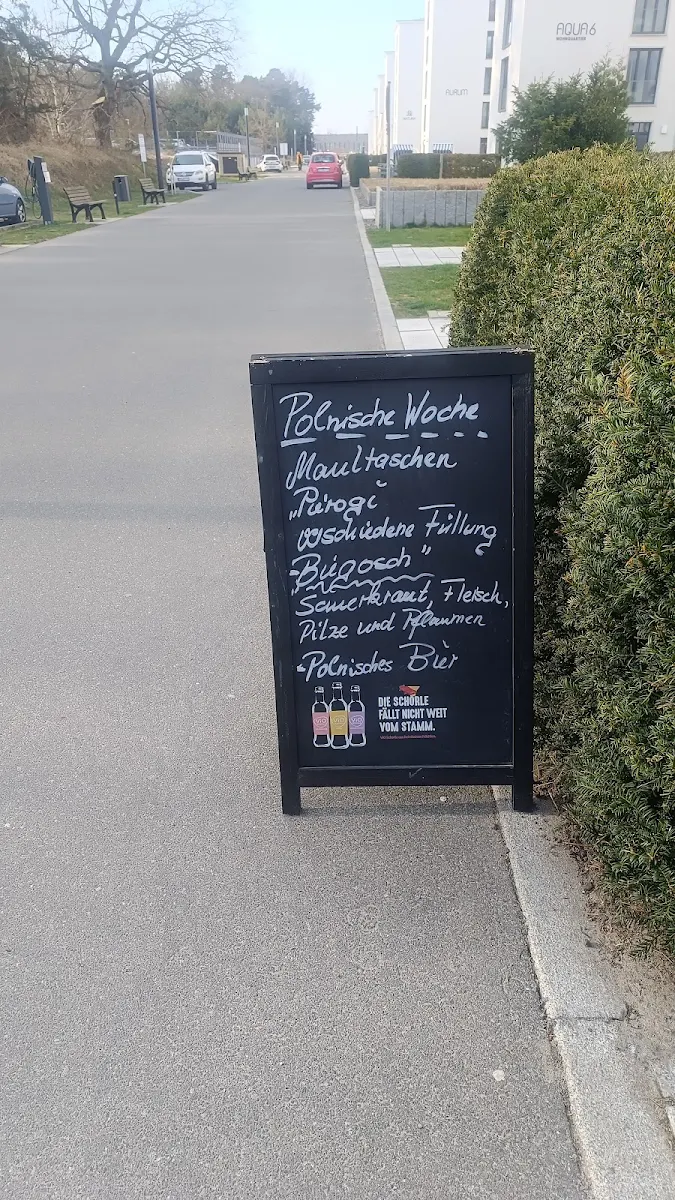 AQUA6
Polnische Woche
Maultaschen
"Pierogi"
verschiedene Füllung
"Biegosch"
Sauerkraut, Fleisch,
Pilze und Pflaumen
Polnisches Bier
ViO ViO ViO
DIE SCHORLE
FÄLLT NICHT WEIT
VOM STAMM.